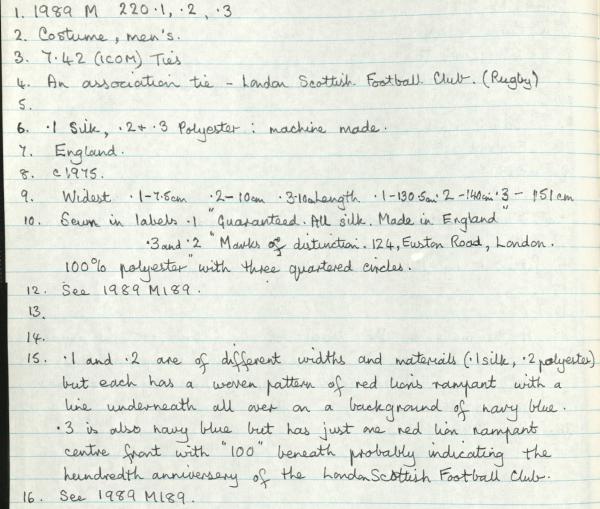 1. 1989 M 220.1, .2, .3
2. Costume, men's.
3. 7.42 (ICOM) Ties
4. An association tie - London Scottish Football Club. (Rugby)
5.
6. .1 Silk, .2 + .3 Polyester : machine made.
7. England.
8. c1975.
9. Widest .1-7.5cm .2-10cm .3-10cm Length .1-130.5cm .2-140cm .3- 151cm
10. Sewn in labels .1 "Guaranteed. All silk. Made in England"
.3 and .2 "Marks of distinction. 124, Euston Road, London.
100% polyester" with three quartered circles.
12. See 1989 M189.
13.
14.
15. .1 and .2 are of different widths and materials (.1 silk, .2 polyester)
but each has a woven pattern of red lions rampant with a
line underneath all over on a background of navy blue.
.3 is also navy blue but has just one red lion rampant
centre front with "100" beneath probably indicating the
hundredth anniversery of the London Scottish Football Club.
16. See 1989 M189.